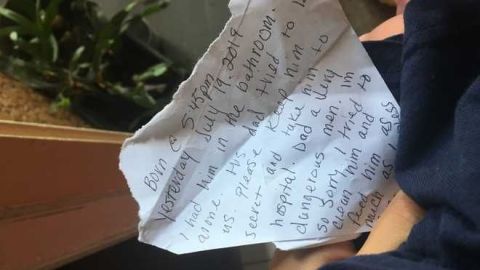 Born @ 5:45pm
Yesterday July 19, 2019
I had him in the bathroom.
alone. His dad tried to
us. Please keep him
secret and take him to
hospital. Dad a very
dangerous men. Im
so sorry I tried to
clean him and
feed him as
much as